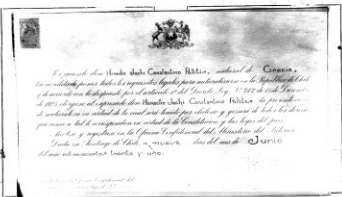 Por cuanto don Horacio Jachi Constantino Politis, natural de Grecia,
ha acreditado poseer todos los requisitos legales para naturalizarse en la República de Chile
y de acuerdo con lo dispuesto por el artículo 1º del Decreto Ley N.º 747 de 15 de Diciembre
de 1925, otórgase al expresado don Constantino Politis la presente carta
de naturaleza en virtud de la cual será tenido por chileno y gozará de todos los derechos
que como a tal le correspondan en virtud de la Constitución y las leyes del país.
Anótese y regístrese en la Oficina Confidencial del Ministerio del Interior.
Dada en Santiago de Chile, a nueve días del mes de Junio
del año mil novecientos treinta y uno.